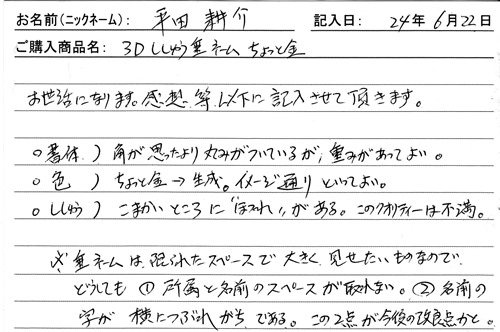 お名前(ニックネーム): 平田 耕介 記入日: 24年 6月22日
ご購入商品名: 3Dししゅう重ネーム ちょっと金
お世話になります。感想 等 以下に記入させて頂きます。
○書体 ) 角が思ったより丸みがついているが、重みがあってよい。
○色 ) ちょっと金→生成。イメージ通り といってよい。
○ししゅう ) こまかい ところに "ほつれ" がある。このクオリティーは不満。
※重ネームは、限られたスペースで 大きく 見せたい ものなので
どうしても ① 所属と名前のスペースが取れない。② 名前の
字が 横につぶれ がち である。この2点が今後の改良点かと。